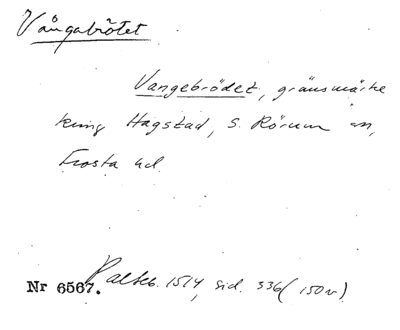 Vångabrötet
Vangebrödet, gränsmärke
kring Hagstad, S. Rörum sn,
Frosta hd.
Nr 6567. Palteb. 1514, sid. 336 (150v)